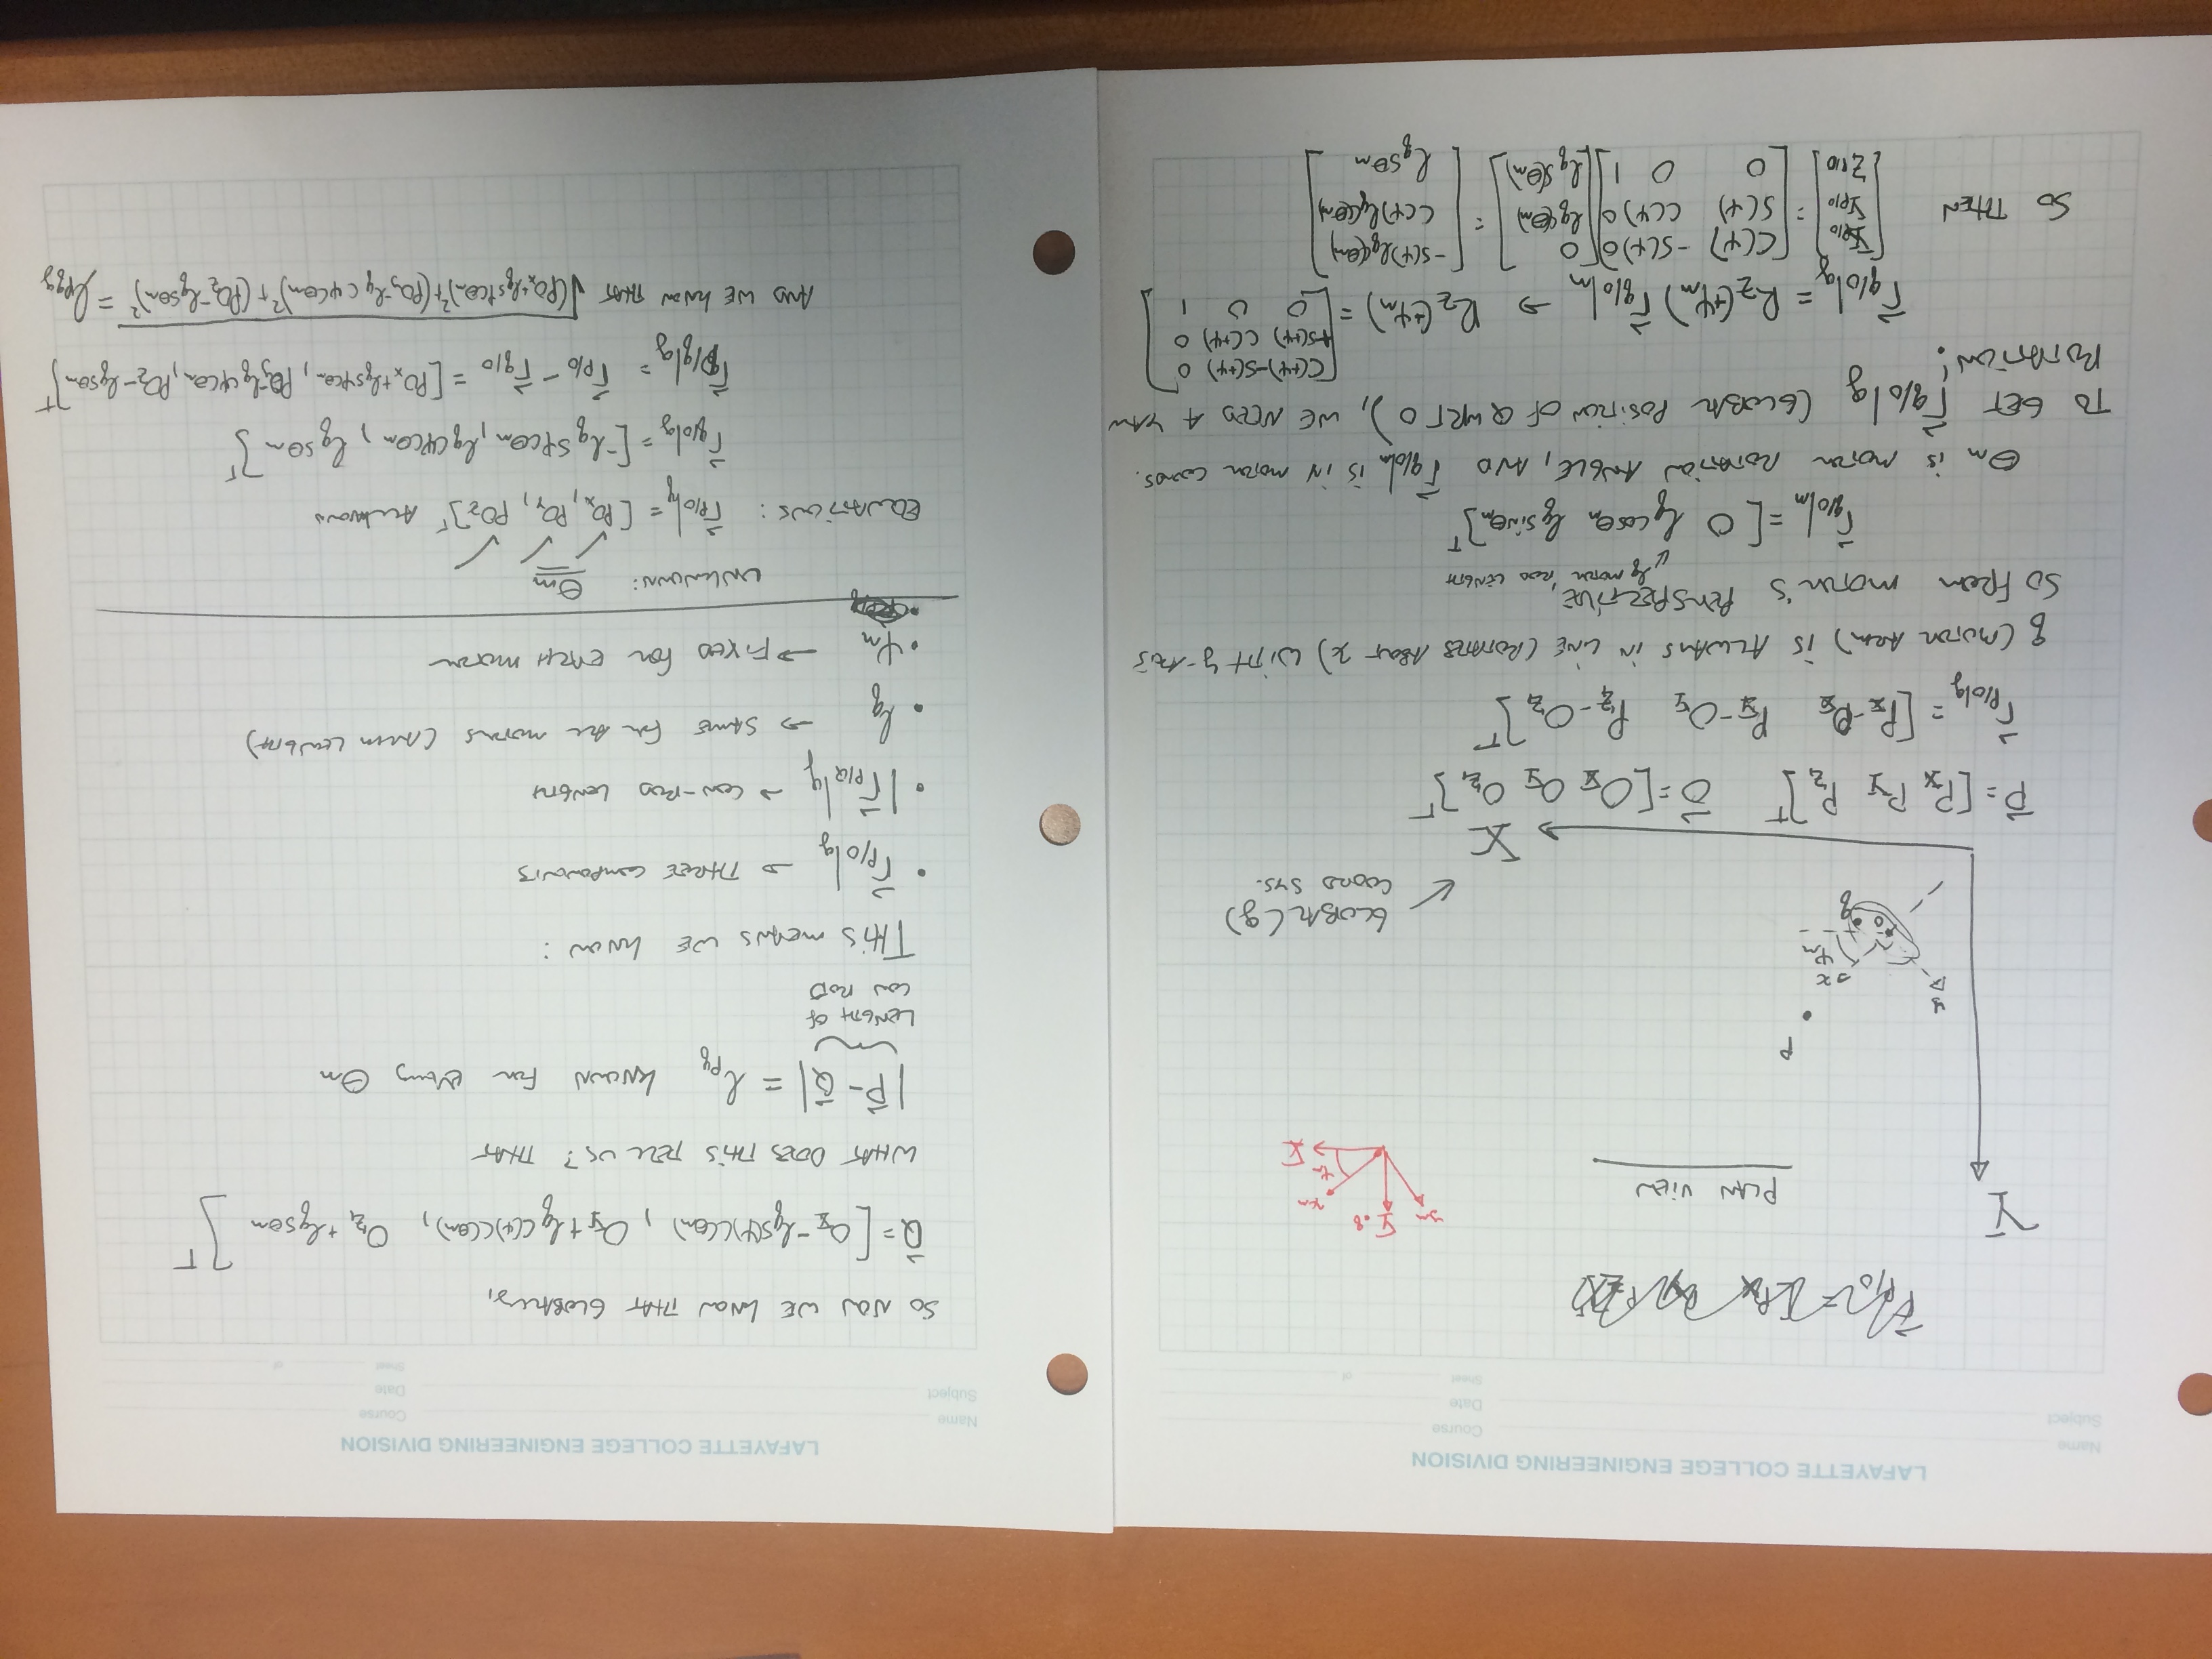 LAFAYETTE COLLEGE ENGINEERING DIVISION
Name Course
Subject Date
Sheet of
Y
PLAN VIEW
ym Y xm
ψm X
P
y x
ψm
O q
GLOBAL (g)
COORD SYS.
X
P⃗ = [P_X P_Y P_Z]^T O⃗ = [O_X O_Y O_Z]^T
r⃗_P/O|g = [P_X-O_X P_Y-O_Y P_Z-O_Z]^T
q (MOTOR ARM) IS ALWAYS IN LINE (ROTATES ABOUT x) WITH y-AXIS
SO FROM MOTOR'S PERSPECTIVE,
lq MOTOR ROD LENGTH
r⃗_q/o|m = [0 lq cosθm lq sinθm]^T
θm IS MOTOR ROTATION ANGLE, AND r⃗_q/o|m IS IN MOTOR COORDS.
TO GET r⃗_q/o|g (GLOBAL POSITION OF Q WRT O), WE NEED A YAW
ROTATION!
r⃗_q/o|g = R_Z(+ψm) r⃗_q/o|m → R_Z(+ψm) = [C(+ψ) -S(+ψ) 0
+S(+ψ) C(+ψ) 0
0 0 1]
SO THEN [X_P/O Y_P/O Z_P/O] = [C(ψ) -S(ψ) 0
S(ψ) C(ψ) 0
0 0 1] [0 lq c(θm) lq s(θm)] = [-S(ψ)lq c(θm)
C(ψ)lq c(θm)
lq sθm]
LAFAYETTE COLLEGE ENGINEERING DIVISION
Name Course
Subject Date
Sheet of
SO NOW WE KNOW THAT GLOBALLY,
Q⃗ = [O_X - lq S(ψ)C(θm), O_Y + lq C(ψ)C(θm), O_Z + lq sθm]^T
WHAT DOES THIS TELL US? THAT
|P⃗ - Q⃗| = l_pq KNOWN FOR EVERY θm
LENGTH OF
CON ROD
THIS MEANS WE KNOW:
• r⃗_P/O|g → THREE COMPONENTS
• |r⃗_P/Q|g → CON-ROD LENGTH
• lq → SAME FOR ALL MOTORS (ARM LENGTH)
• ψm → FIXED FOR EACH MOTOR
UNKNOWN: θm
EQUATIONS: r⃗_P/O|g = [PO_X, PO_Y, PO_Z]^T ALL KNOWN
r⃗_q/o|g = [-lq sψcθm, lq cψcθm, lq sθm]^T
r⃗_P/q|g = r⃗_P/O - r⃗_q/o = [PO_x + lq sψcθm, PO_y - lq cψcθm, PO_z - lq sθm]^T
AND WE KNOW THAT √((PO_x + lq sψcθm)² + (PO_y - lq cψcθm)² + (PO_z - lq sθm)²) = l_pqg